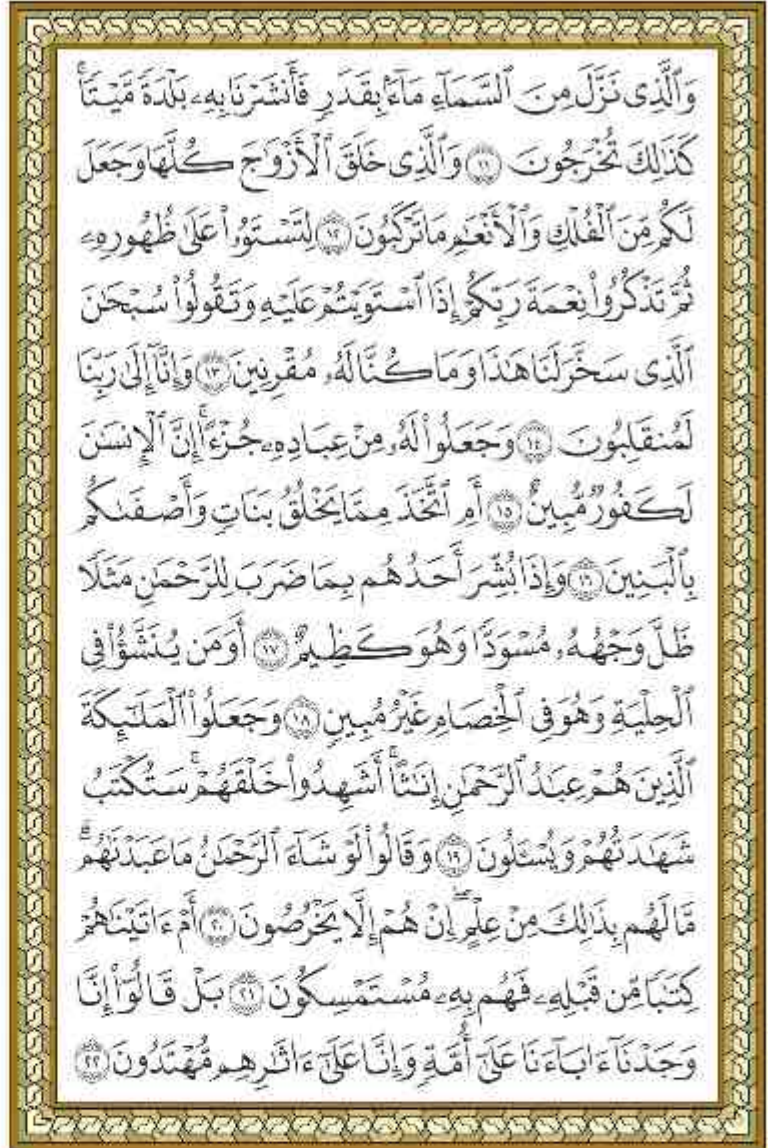 وَٱلَّذِى نَزَّلَ مِنَ ٱلسَّمَآءِ مَآءَۢ بِقَدَرٍ فَأَنشَرْنَا بِهِۦ بَلْدَةً مَّيْتًا ۚ
كَذَٰلِكَ تُخْرَجُونَ ١١ وَٱلَّذِى خَلَقَ ٱلْأَزْوَٰجَ كُلَّهَا وَجَعَلَ
لَكُم مِّنَ ٱلْفُلْكِ وَٱلْأَنْعَٰمِ مَا تَرْكَبُونَ ١٢ لِتَسْتَوُۥا۟ عَلَىٰ ظُهُورِهِۦ
ثُمَّ تَذْكُرُوا۟ نِعْمَةَ رَبِّكُمْ إِذَا ٱسْتَوَيْتُمْ عَلَيْهِ وَتَقُولُوا۟ سُبْحَٰنَ
ٱلَّذِى سَخَّرَ لَنَا هَٰذَا وَمَا كُنَّا لَهُۥ مُقْرِنِينَ ١٣ وَإِنَّآ إِلَىٰ رَبِّنَا
لَمُنقَلِبُونَ ١٤ وَجَعَلُوا۟ لَهُۥ مِنْ عِبَادِهِۦ جُزْءًا ۚ إِنَّ ٱلْإِنسَٰنَ
لَكَفُورٌ مُّبِينٌ ١٥ أَمِ ٱتَّخَذَ مِمَّا يَخْلُقُ بَنَاتٍ وَأَصْفَىٰكُم
بِٱلْبَنِينَ ١٦ وَإِذَا بُشِّرَ أَحَدُهُم بِمَا ضَرَبَ لِلرَّحْمَٰنِ مَثَلًا
ظَلَّ وَجْهُهُۥ مُسْوَدًّا وَهُوَ كَظِيمٌ ١٧ أَوَمَن يُنَشَّؤُا۟ فِى
ٱلْحِلْيَةِ وَهُوَ فِى ٱلْخِصَامِ غَيْرُ مُبِينٍ ١٨ وَجَعَلُوا۟ ٱلْمَلَٰٓئِكَةَ
ٱلَّذِينَ هُمْ عِبَٰدُ ٱلرَّحْمَٰنِ إِنَٰثًا ۚ أَشَهِدُوا۟ خَلْقَهُمْ ۚ سَتُكْتَبُ
شَهَٰدَتُهُمْ وَيُسْـَٔلُونَ ١٩ وَقَالُوا۟ لَوْ شَآءَ ٱلرَّحْمَٰنُ مَا عَبَدْنَٰهُم ۗ
مَّا لَهُم بِذَٰلِكَ مِنْ عِلْمٍ ۖ إِنْ هُمْ إِلَّا يَخْرُصُونَ ٢٠ أَمْ ءَاتَيْنَٰهُمْ
كِتَٰبًا مِّن قَبْلِهِۦ فَهُم بِهِۦ مُسْتَمْسِكُونَ ٢١ بَلْ قَالُوٓا۟ إِنَّا
وَجَدْنَآ ءَابَآءَنَا عَلَىٰٓ أُمَّةٍ وَإِنَّا عَلَىٰٓ ءَاثَٰرِهِم مُّهْتَدُونَ ٢٢